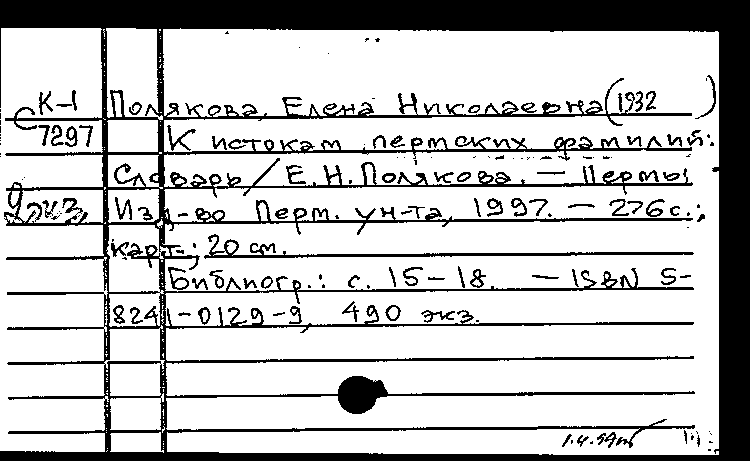 К-1 Полякова, Елена Николаевна (1932 )
С 7297 К истокам пермских фамилий:
Словарь / Е.Н.Полякова. — Пермь:
2 экз. Изд-во Перм. ун-та, 1997. — 276 с.;
карт.; 20 см.
Библиогр.: с. 15-18. — ISBN 5-
8241-0129-9, 490 экз.
1.4.99